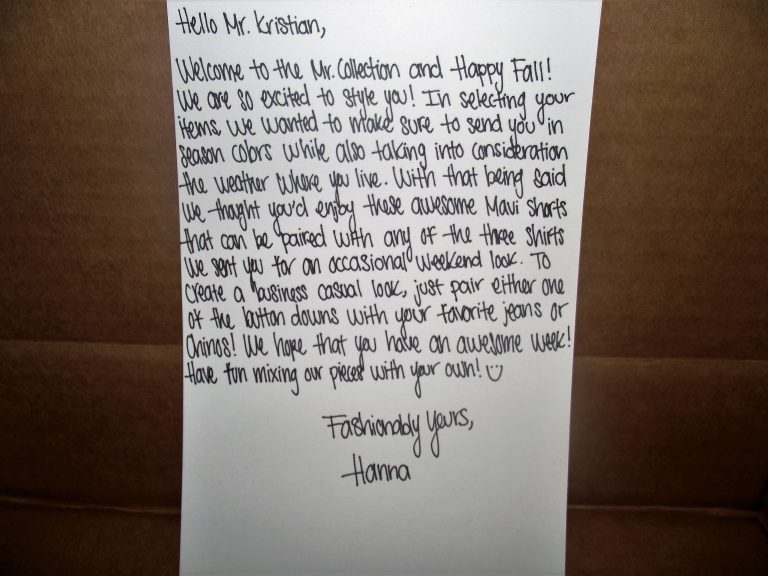 Hello Mr. Kristian,
Welcome to the Mr. Collection and Happy Fall!
We are so excited to style you! In selecting your
items, we wanted to make sure to send you in
season colors while also taking into consideration
the weather where you live. With that being said
we thought you'd enjoy these awesome Mavi shorts
that can be paired with any of the three shirts
we sent you for an occasional weekend look. To
create a business casual look, just pair either one
of the button downs with your favorite jeans or
Chinos! We hope that you have an awesome week!
Have fun mixing our pieces with your own! ☺
Fashionably yours,
Hanna